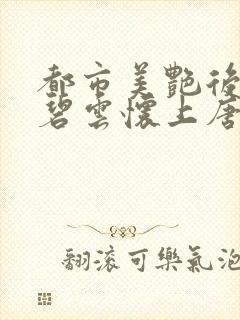 都市美艷後
碧雲懷上唐
翻滾可樂氣泡